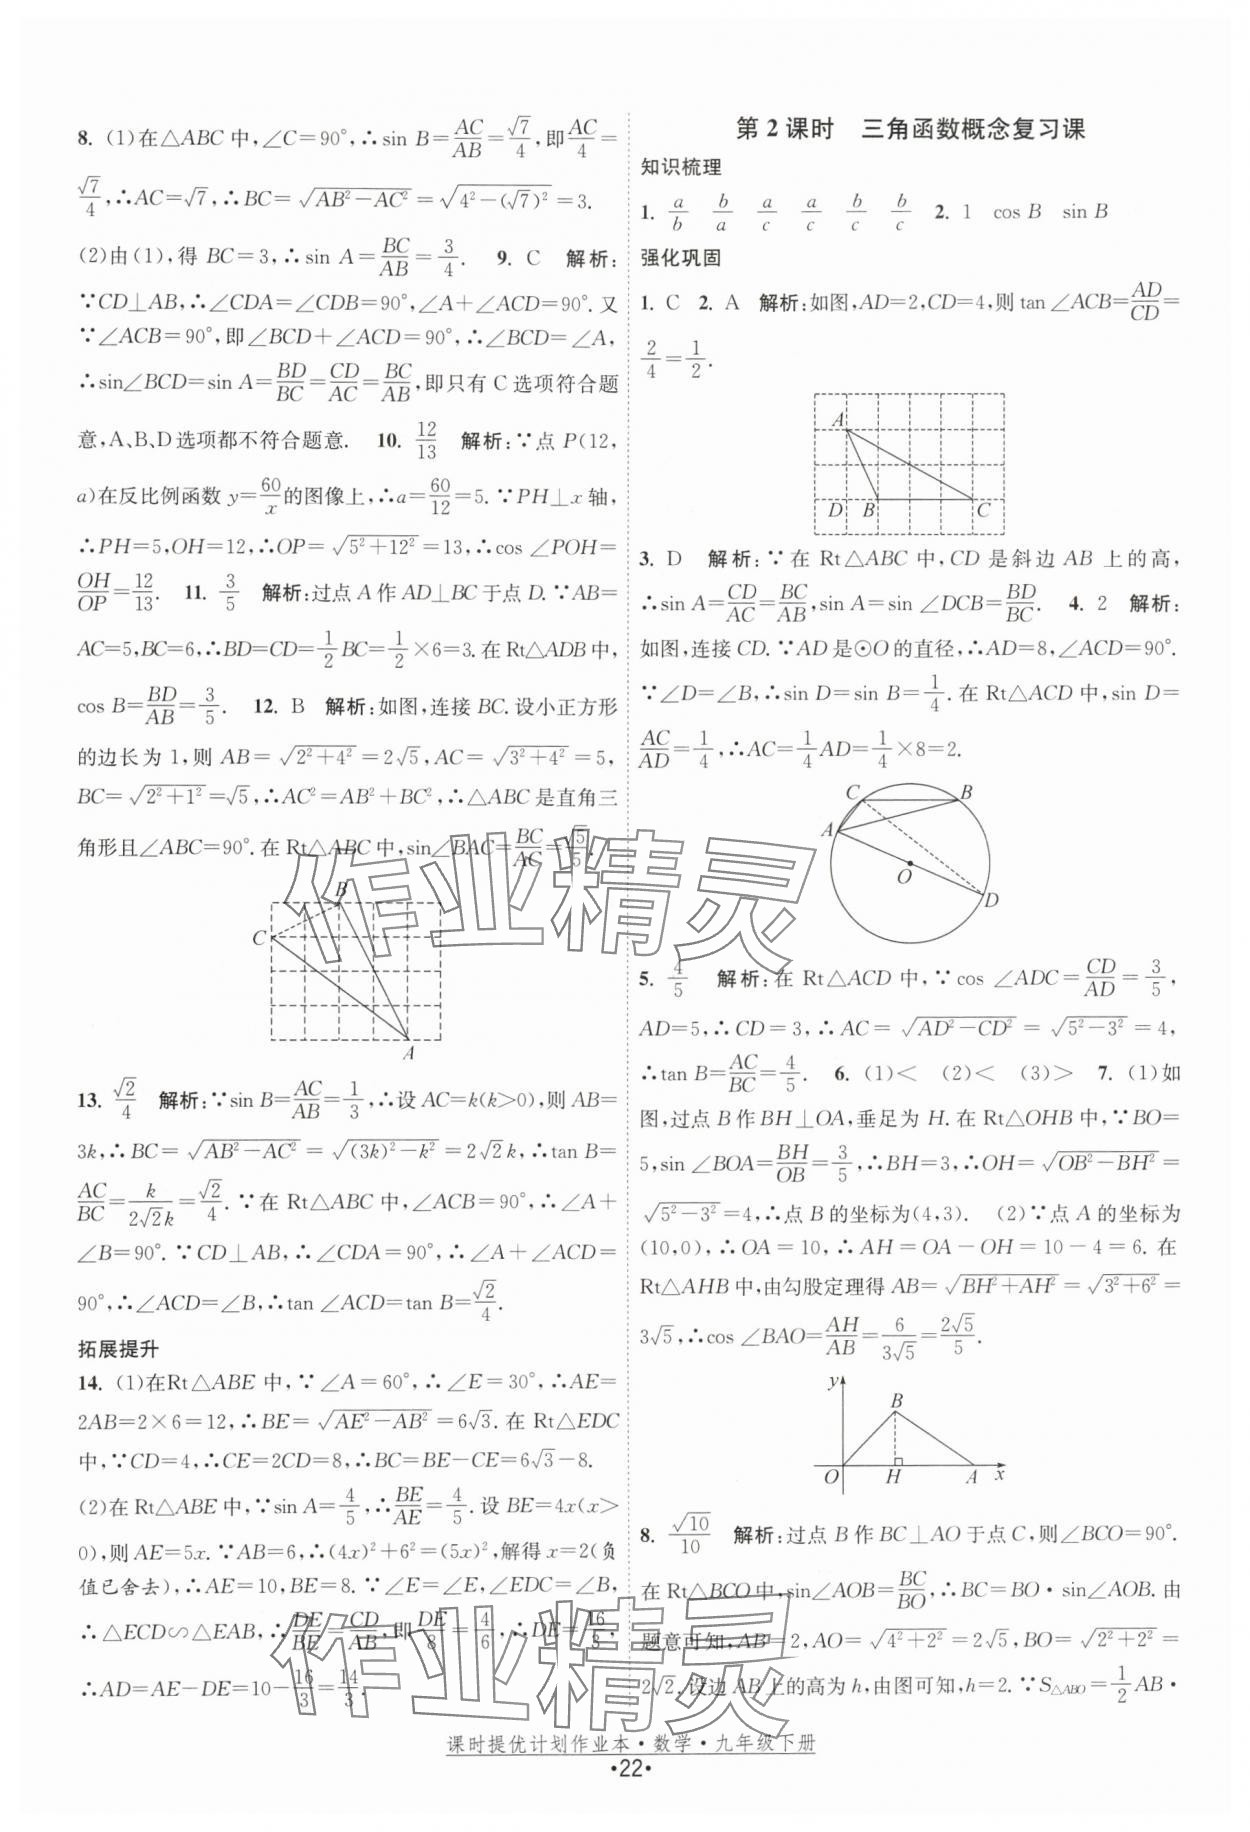 8. (1)在△ABC中,∠C=90°,∴sin B=AC/AB=√7/4,即AC/4=
√7/4,∴AC=√7,∴BC=√(AB²-AC²)=√(4²-(√7)²)=3.
(2)由(1),得BC=3,∴sin A=BC/AB=3/4. 9. C 解析:
∵CD⊥AB,∴∠CDA=∠CDB=90°,∠A+∠ACD=90°.又
∵∠ACB=90°,即∠BCD+∠ACD=90°,∴∠BCD=∠A,
∴sin∠BCD=sin A=BD/BC=CD/AC=BC/AB,即只有C选项符合题
意,A、B、D选项都不符合题意. 10. 12/13 解析:∵点P(12,
a)在反比例函数y=60/x的图像上,∴a=60/12=5.∵PH⊥x轴,
∴PH=5,OH=12,∴OP=√(5²+12²)=13,∴cos∠POH=
OH/OP=12/13. 11. 3/5 解析:过点A作AD⊥BC于点D.∵AB=
AC=5,BC=6,∴BD=CD=1/2BC=1/2×6=3.在Rt△ADB中,
cos B=BD/AB=3/5. 12. B 解析:如图,连接BC.设小正方形
的边长为1,则AB=√(2²+4²)=2√5,AC=√(3²+4²)=5,
BC=√(2²+1²)=√5,∴AC²=AB²+BC²,∴△ABC是直角三
角形且∠ABC=90°.在Rt△ABC中,sin∠BAC=BC/AC=√5/5.
B
C
A
13. √2/4 解析:∵sin B=AC/AB=1/3,∴设AC=k(k>0),则AB=
3k,∴BC=√(AB²-AC²)=√((3k)²-k²)=2√2k,∴tan B=
AC/BC=k/(2√2k)=√2/4.∵在Rt△ABC中,∠ACB=90°,∴∠A+
∠B=90°.∵CD⊥AB,∴∠CDA=90°,∴∠A+∠ACD=
90°,∴∠ACD=∠B,∴tan∠ACD=tan B=√2/4.
拓展提升
14. (1)在Rt△ABE中,∵∠A=60°,∴∠E=30°,∴AE=
2AB=2×6=12,∴BE=√(AE²-AB²)=6√3.在Rt△EDC
中,∵CD=4,∴CE=2CD=8,∴BC=BE-CE=6√3-8.
(2)在Rt△ABE中,∵sin A=4/5,∴BE/AE=4/5.设BE=4x(x>
0),则AE=5x.∵AB=6,∴(4x)²+6²=(5x)²,解得x=2(负
值已舍去),∴AE=10,BE=8.∵∠E=∠E,∠EDC=∠B,
∴△ECD∽△EAB,∴DE/BE=CD/AB,即DE/8=4/6,∴DE=16/3,
∴AD=AE-DE=10-16/3=14/3.
第2课时 三角函数概念复习课
知识梳理
1. a/b b/a a/c a/c b/c b/c 2. 1 cos B sin B
强化巩固
1. C 2. A 解析:如图,AD=2,CD=4,则tan∠ACB=AD/CD=
2/4=1/2.
A
D B C
3. D 解析:∵在Rt△ABC中,CD是斜边AB上的高,
∴sin A=CD/AC=BC/AB,sin A=sin∠DCB=BD/BC. 4. 2 解析:
如图,连接CD.∵AD是⊙O的直径,∴AD=8,∠ACD=90°.
∵∠D=∠B,∴sin D=sin B=1/4.在Rt△ACD中,sin D=
AC/AD=1/4,∴AC=1/4AD=1/4×8=2.
C B
A
O
D
5. 4/5 解析:在Rt△ACD中,∵cos∠ADC=CD/AD=3/5,
AD=5,∴CD=3,∴AC=√(AD²-CD²)=√(5²-3²)=4,
∴tan B=AC/BC=4/5. 6. (1)< (2)< (3)> 7. (1)如
图,过点B作BH⊥OA,垂足为H.在Rt△OHB中,∵BO=
5,sin∠BOA=BH/OB=3/5,∴BH=3,∴OH=√(OB²-BH²)=
√(5²-3²)=4,∴点B的坐标为(4,3). (2)∵点A的坐标为
(10,0),∴OA=10,∴AH=OA-OH=10-4=6.在
Rt△AHB中,由勾股定理得AB=√(BH²+AH²)=√(3²+6²)=
3√5,∴cos∠BAO=AH/AB=6/(3√5)=2√5/5.
y
B
O H A x
8. √10/10 解析:过点B作BC⊥AO于点C,则∠BCO=90°.
在Rt△BCO中,sin∠AOB=BC/BO,∴BC=BO·sin∠AOB.由
题意可知,AB=2,AO=√(4²+2²)=2√5,BO=√(2²+2²)=
2√2.设边AB上的高为h,由图可知,h=2.∵S△ABO=1/2AB·
作业精灵
作业精灵
课时提优计划作业本·数学·九年级下册
·22·